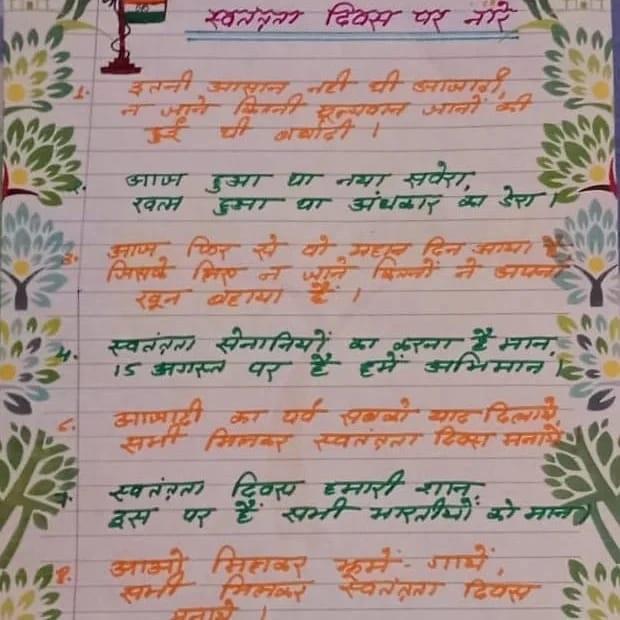 स्वतंत्रता दिवस पर नारे
1. इतनी आसान नहीं थी आजादी,
न जाने कितनी मूल्यवान जानों की
हुई थी बर्बादी ।
2. आज हुआ था नया सवेरा,
खत्म हुआ था अंधकार का डेरा ।
3. आज फिर से वो महान दिन आया है
जिसके लिए न जाने कितनों ने अपना
खून बहाया है ।
4. स्वतंत्रता सेनानियों का करना है मान,
15 अगस्त पर है हमें अभिमान ।
आजादी का पर्व सबको याद दिलाये
सभी मिलकर स्वतंत्रता दिवस मनाये
स्वतंत्रता दिवस हमारी शान,
इस पर है सभी भारतीयों को मान ।
8. आओ मिलकर झूमें - गायें,
सभी मिलकर स्वतंत्रता दिवस
मनाये ।